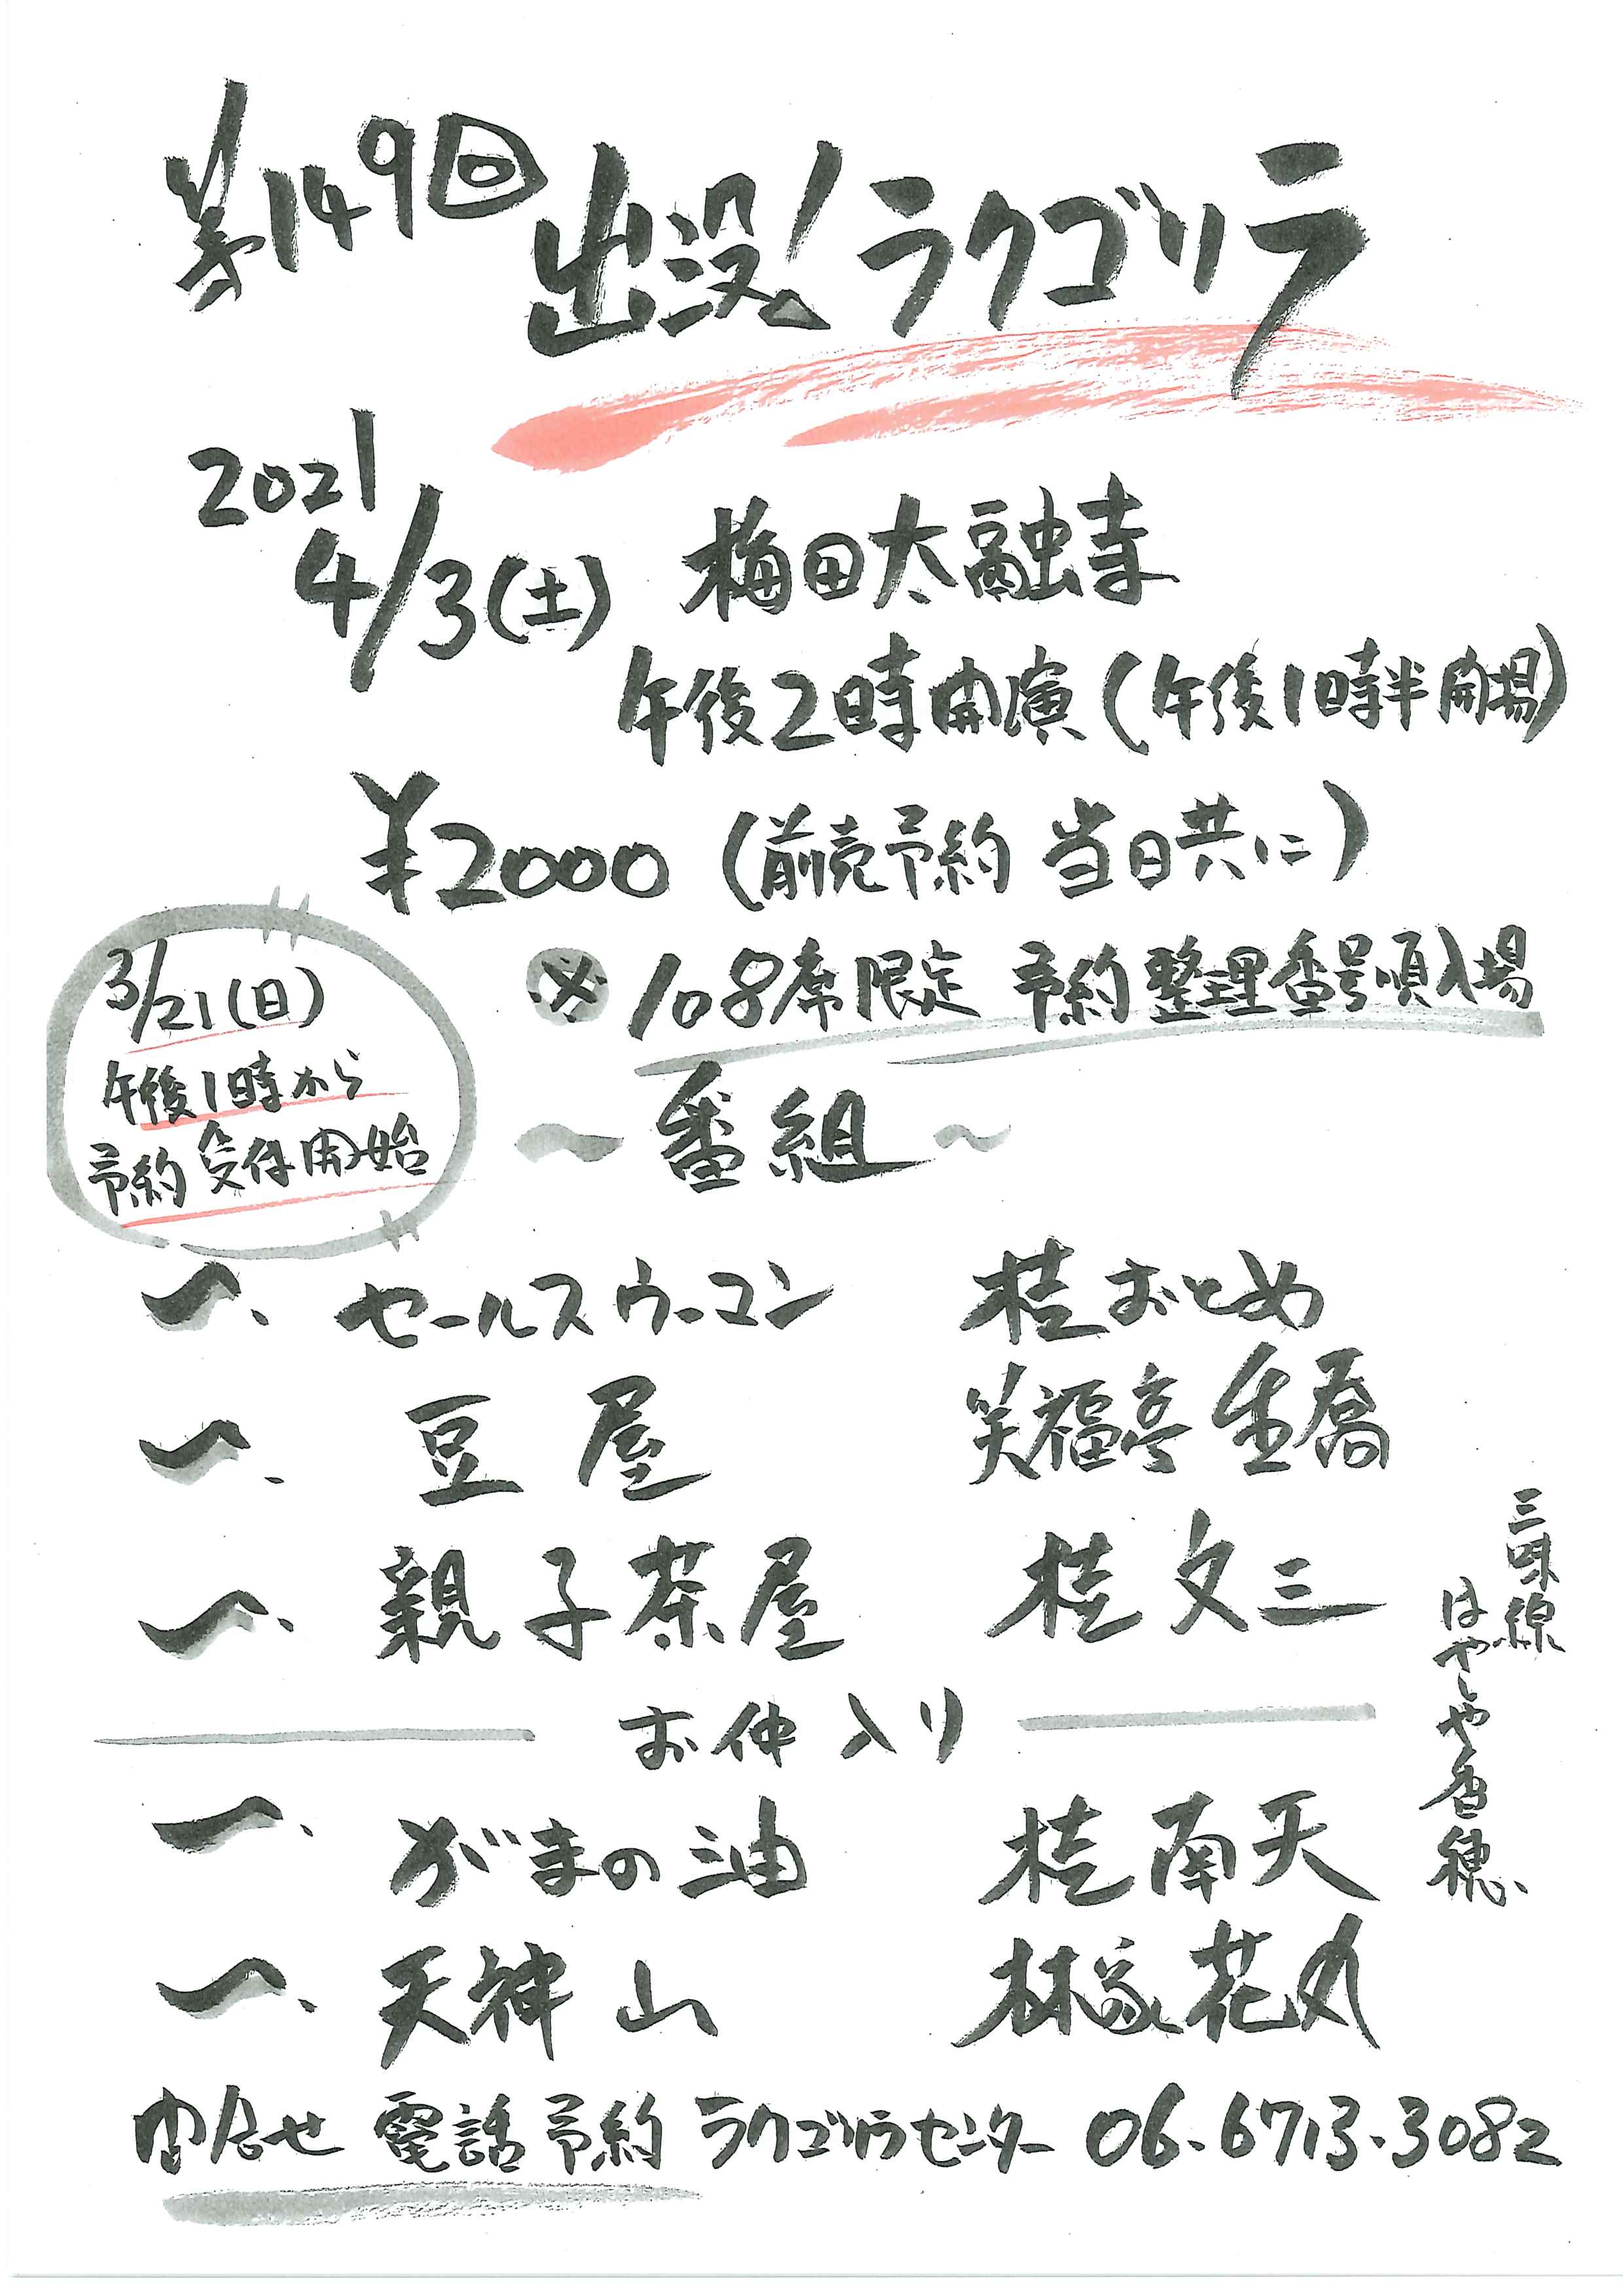 第149回 出没!ラクゴリラ
2021
4/3(土) 梅田太融寺
午後2時開演(午後1時半開場)
¥2000(前売予約 当日共に)
※108席限定 予約整理番号順入場
3/21(日)
午後1時から
予約受付開始
~番組~
一、セールスウーマン 桂おとめ
一、豆屋 笑福亭生喬
一、親子茶屋 桂文三
お仲入り
一、がまの油 桂南天
一、天神山 林家花丸
三味線
はやしや香穂
問合せ 電話予約 ラクゴリラセンター 06.6713.3082